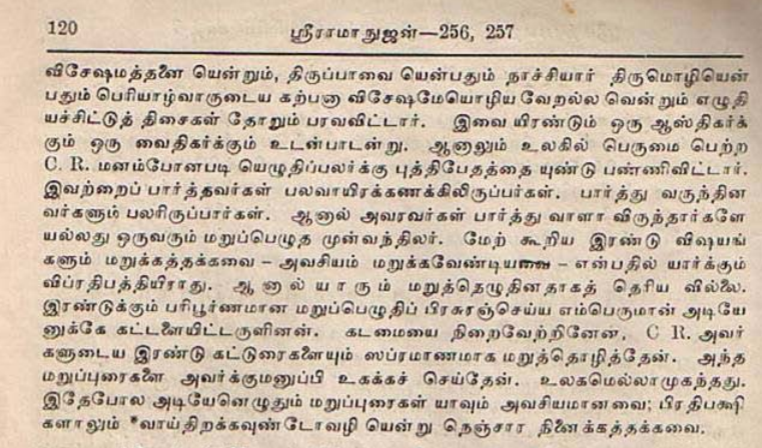 120 ஸ்ரீராமாநுஜன்—256, 257
விசேஷமத்தனை யென்றும், திருப்பாவை யென்பதும் நாச்சியார் திருமொழியென்
பதும் பெரியாழ்வாருடைய கற்பனா விசேஷமேயொழிய வேறல்ல வென்றும் எழுதி
யச்சிட்டுத் திசைகள் தோறும் பரவவிட்டார். இவை யிரண்டும் ஒரு ஆஸ்திகர்க்
கும் ஒரு வைதிகர்க்கும் உடன்பாடன்று. ஆனாலும் உலகில் பெருமை பெற்ற
C. R. மனம்போனபடி யெழுதிப்பலர்க்கு புத்திபேதத்தை யுண்டு பண்ணிவிட்டார்.
இவற்றைப் பார்த்தவர்கள் பலவாயிரக்கணக்கிலிருப்பர்கள். பார்த்து வருந்தின
வர்களும் பலரிருப்பார்கள். ஆனால் அவரவர்கள் பார்த்து வாளா விருந்தார்களே
யல்லது ஒருவரும் மறுப்பெழுத முன்வந்திலர். மேற் கூறிய இரண்டு விஷயங்
களும் மறுக்கத்தக்கவை – அவசியம் மறுக்கவேண்டியவை – என்பதில் யார்க்கும்
விப்ரதிபத்தியிராது. ஆனால் யாரும் மறுத்தெழுதினதாகத் தெரிய வில்லை.
இரண்டுக்கும் பரிபூர்ணமான மறுப்பெழுதிப் பிரசுரஞ்செய்ய எம்பெருமான் அடியே
னுக்கே கட்டளையிட்டருளினன். கடமையை நிறைவேற்றினேன். C R. அவர்
களுடைய இரண்டு கட்டுரைகளையும் ஸப்ரமாணமாக மறுத்தொழித்தேன். அந்த
மறுப்புரைகளை அவர்க்குமனுப்பி உகக்கச் செய்தேன். உலகமெல்லாமுகந்தது.
இதேபோல அடியேனெழுதும் மறுப்புரைகள் யாவும் அவசியமானவை; பிரதிபக்ஷி
களாலும் *வாய்திறக்கவுண்டோவழி யென்று நெஞ்சார நினைக்கத்தக்கவை.